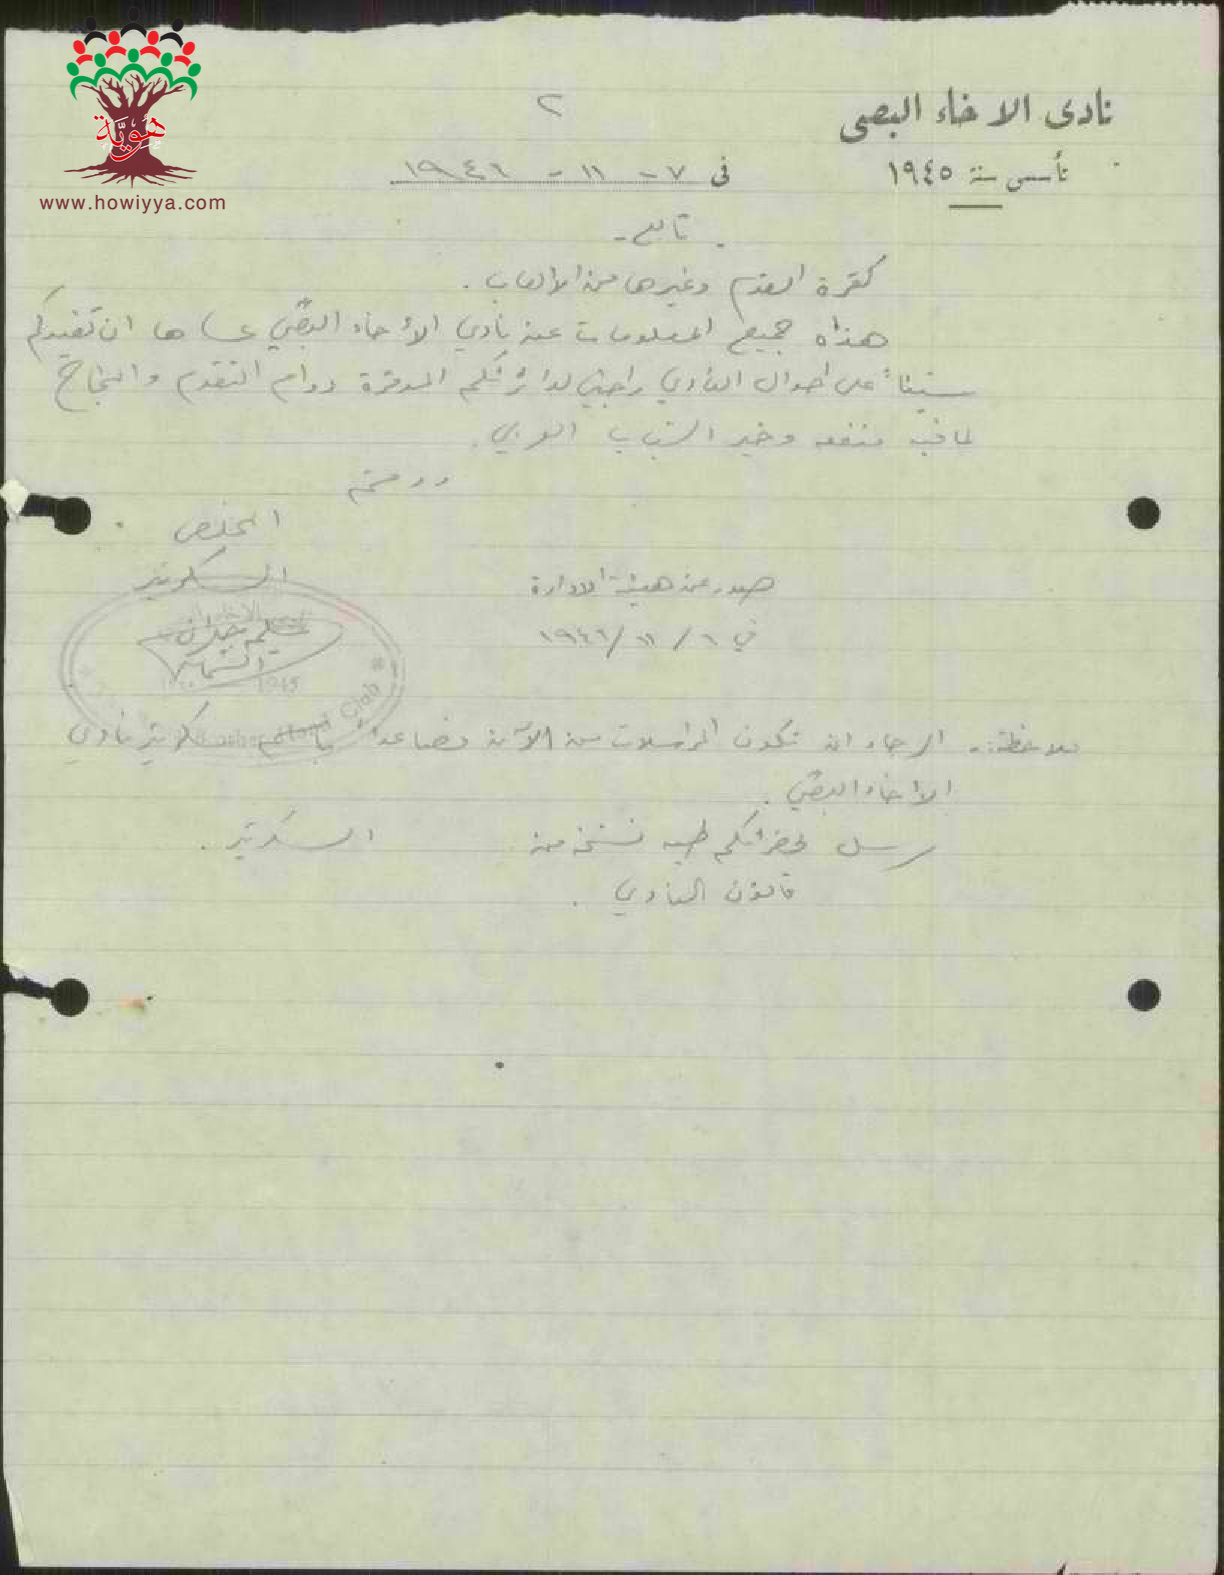 هوية
www.howiyya.com
نادى الاخاء البصى
تأسس سنة ١٩٤٥
٢
فى ٧ - ١١ - ١٩٤٦
تابع -
كقرة القدم وغيرها من الالعاب .
هذه جميع المعلومات عن نادي الأخاء البصّي عساها ان تفيدكم
شيئاً على احوال النادي راجين لدائرتكم الموقرة دوام التقدم والنجاح
لما فيه منفعه وخير الشباب العربي .
ودمتم
المخلص
السكرتير
صدر عن هيئة الادارة
في ٦ / ١١ / ١٩٤٦
1945
Club
ملاحظة :- الرجاء ان تكون المراسلات من الآن فصاعداً باسم سكرتير نادي
الاخاء البصّي .
رسل لحضرتكم طيه نسخه من
السكرتير .
قانون النادي .